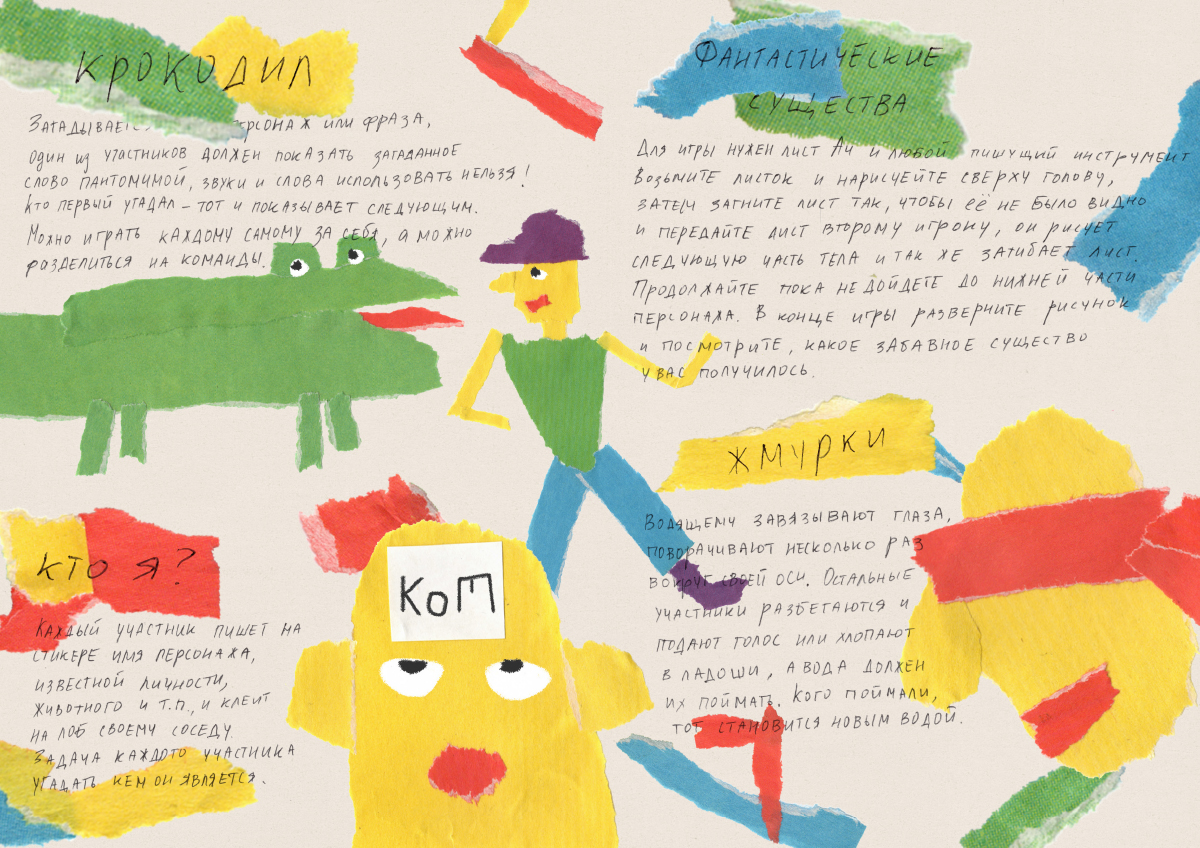 КРОКОДИЛ
ЗАГАДЫВАЕТСЯ ПЕРСОНАЖ ИЛИ ФРАЗА,
ОДИН ИЗ УЧАСТНИКОВ ДОЛЖЕН ПОКАЗАТЬ ЗАГАДАННОЕ
СЛОВО ПАНТОМИМОЙ, ЗВУКИ И СЛОВА ИСПОЛЬЗОВАТЬ НЕЛЬЗЯ!
КТО ПЕРВЫЙ УГАДАЛ – ТОТ И ПОКАЗЫВАЕТ СЛЕДУЮЩИМ.
МОЖНО ИГРАТЬ КАЖДОМУ САМОМУ ЗА СЕБЯ, А МОЖНО
РАЗДЕЛИТЬСЯ НА КОМАНДЫ.
ФАНТАСТИЧЕСКИЕ
СУЩЕСТВА
ДЛЯ ИГРЫ НУЖЕН ЛИСТ А4 И ЛЮБОЙ ПИШУЩИЙ ИНСТРУМЕНТ
ВОЗЬМИТЕ ЛИСТОК И НАРИСУЕЙТЕ СВЕРХУ ГОЛОВУ,
ЗАТЕМ ЗАГНИТЕ ЛИСТ ТАК, ЧТОБЫ ЕЁ НЕ БЫЛО ВИДНО
И ПЕРЕДАЙТЕ ЛИСТ ВТОРОМУ ИГРОКУ, ОН РИСУЕТ
СЛЕДУЮЩУЮ ЧАСТЬ ТЕЛА И ТАК ЖЕ ЗАГИБАЕТ ЛИСТ.
ПРОДОЛЖАЙТЕ ПОКА НЕ ДОЙДЕТЕ ДО НИЖНЕЙ ЧАСТИ
ПЕРСОНАЖА. В КОНЦЕ ИГРЫ РАЗВЕРНИТЕ РИСУНОК
И ПОСМОТРИТЕ, КАКОЕ ЗАБАВНОЕ СУЩЕСТВО
У ВАС ПОЛУЧИЛОСЬ.
ЖМУРКИ
ВОДЯЩЕМУ ЗАВЯЗЫВАЮТ ГЛАЗА,
ПОВОРАЧИВАЮТ НЕСКОЛЬКО РАЗ
ВОКРУГ СВОЕЙ ОСИ. ОСТАЛЬНЫЕ
УЧАСТНИКИ РАЗБЕГАЮТСЯ И
ПОДАЮТ ГОЛОС ИЛИ ХЛОПАЮТ
В ЛАДОШИ, А ВОДА ДОЛЖЕН
ИХ ПОЙМАТЬ. КОГО ПОЙМАЛИ,
ТОТ СТАНОВИТСЯ НОВЫМ ВОДОЙ.
КТО Я?
КАЖДЫЙ УЧАСТНИК ПИШЕТ НА
СТИКЕРЕ ИМЯ ПЕРСОНАЖА,
ИЗВЕСТНОЙ ЛИЧНОСТИ,
ЖИВОТНОГО И Т.П., И КЛЕИТ
НА ЛОБ СВОЕМУ СОСЕДУ.
ЗАДАЧА КАЖДОГО УЧАСТНИКА
УГАДАТЬ КЕМ ОН ЯВЛЯЕТСЯ.
КОТ